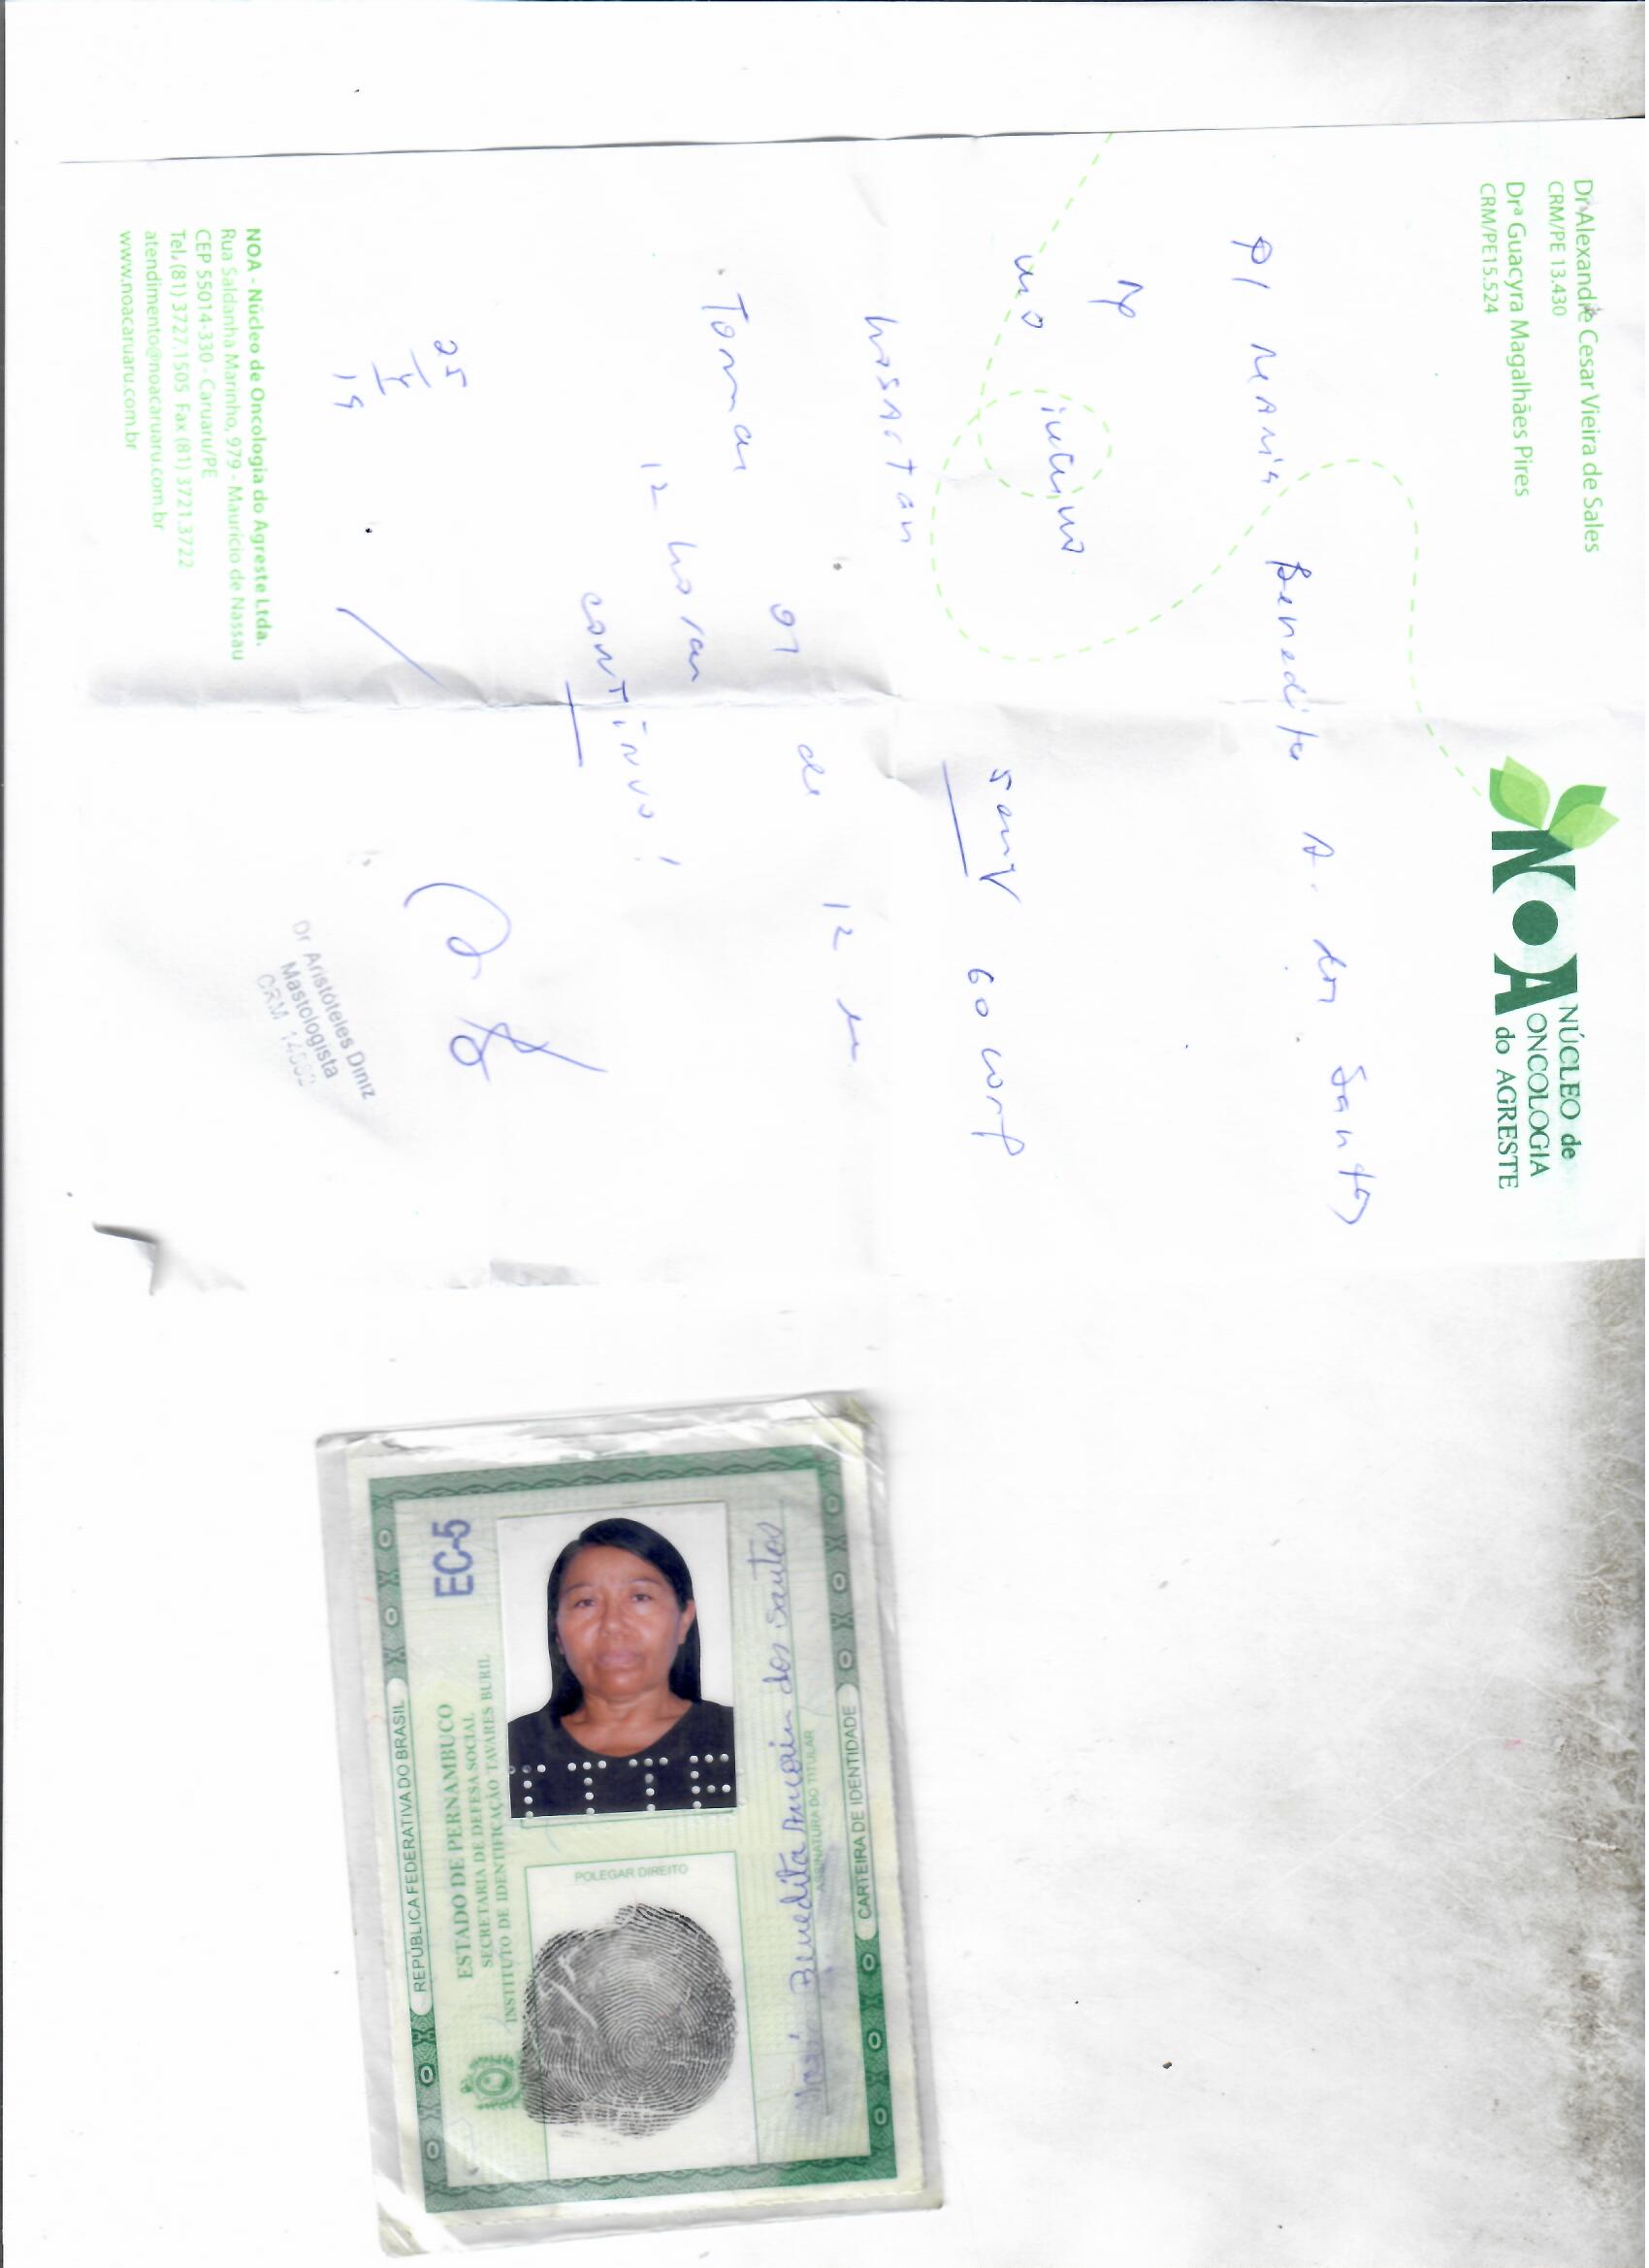 Dr Alexandre Cesar Vieira de Sales
CRM/PE 13.430
Drª Guacyra Magalhães Pires
CRM/PE 15.524
NOA
NÚCLEO de
ONCOLOGIA
do AGRESTE
P/ Maria Benedita A. dos Santos
uso interno
Losartan 50mg 60 comp
Tomar 01 de 12 em
12 horas
contínuo!
25
19
Dr Aristóteles Diniz
Mastologista
CRM
NOA - Núcleo de Oncologia do Agreste Ltda.
Rua Saldanha Marinho, 979 - Maurício de Nassau
CEP 55014-330 - Caruaru/PE
Tel. (81) 3727.1505 Fax (81) 3721.3722
atendimento@noacaruaru.com.br
www.noacaruaru.com.br
REPÚBLICA FEDERATIVA DO BRASIL
EC-5
ESTADO DE PERNAMBUCO
SECRETARIA DE DEFESA SOCIAL
INSTITUTO DE IDENTIFICAÇÃO TAVARES BURIL
POLEGAR DIREITO
Benedita Amorim dos Santos
ASSINATURA DO TITULAR
CARTEIRA DE IDENTIDADE